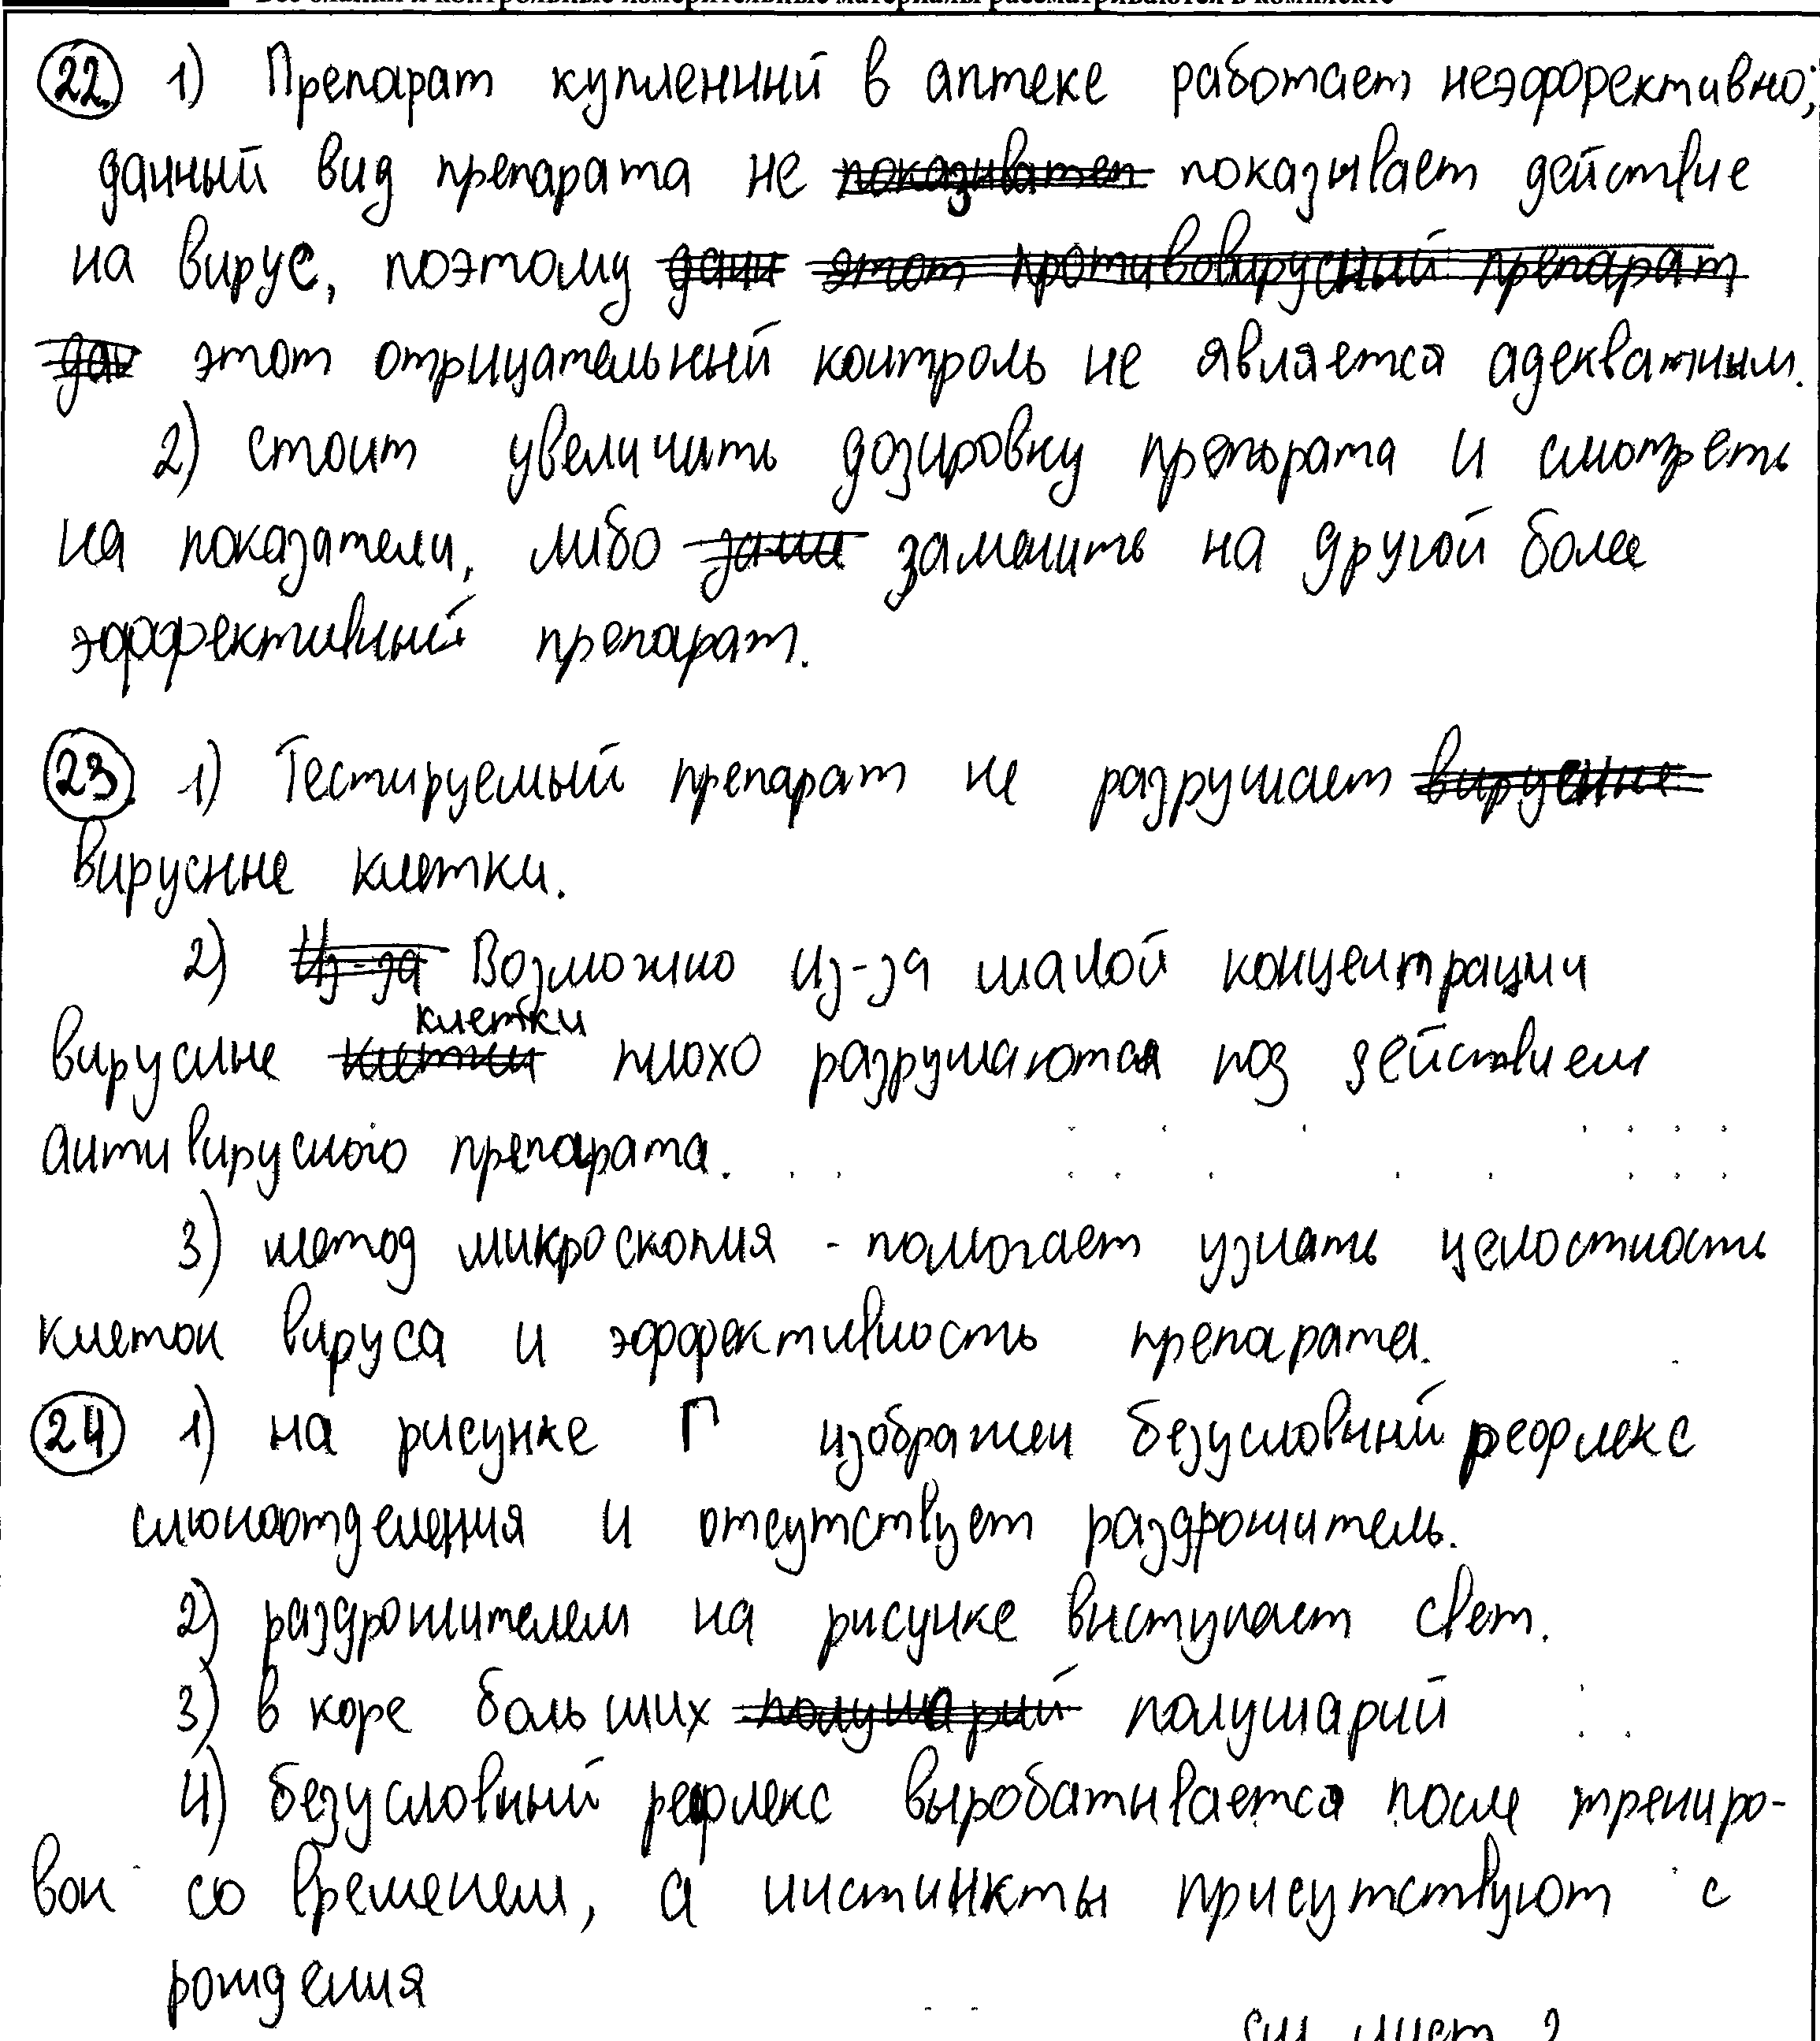 Все бланки и контрольные измерительные материалы рассматриваются в комплекте
22. 1) Препарат купленний в аптеке работает неэффективно;
данный вид препарата не показывает действие
на вирус, поэтому
этот отрицательный контроль не является адекватным.
2) стоит увеличить дозировку препората и смотреть
на показатели, либо заменить на другой более
эффективный препарат.
23. 1) Тестируемый препарат не разрушает
вирусные клетки.
2) Возможно из-за малой концентрации
клетки
вирусные плохо разрушаются под действием
антивирусного препарата.
3) метод микроскопия - помогает узнать целостность
клеток вируса и эффективность препарата.
24 1) на рисунке Г изображен безусловный рефлекс
слюноотделения и отсутствует раздрожитель.
2) раздрожителем на рисунке выступает свет.
3) в коре больших полушарий
4) безусловный рефлекс выробатывается после трениро-
вок со временем, а инстинкты присутствуют с
рождения
см лист 2